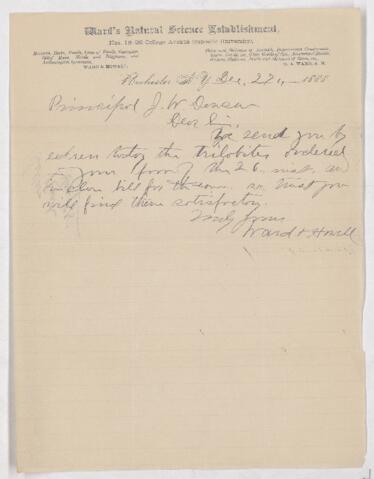 Ward's Natural Science Establishment,
Nos. 18-26 College Avenue (Opposite University).
WARD & HOWELL. H. A. WARD, A. M.
Rochester, N. Y. Dec. 27, 1888
Principal J. W.
Dear Sir,
We send you by
express today the trilobites ordered
in your favor of the 26 inst. and
enclose bill for the same. We trust you
will find them satisfactory.
Truly yours
Ward & Howell